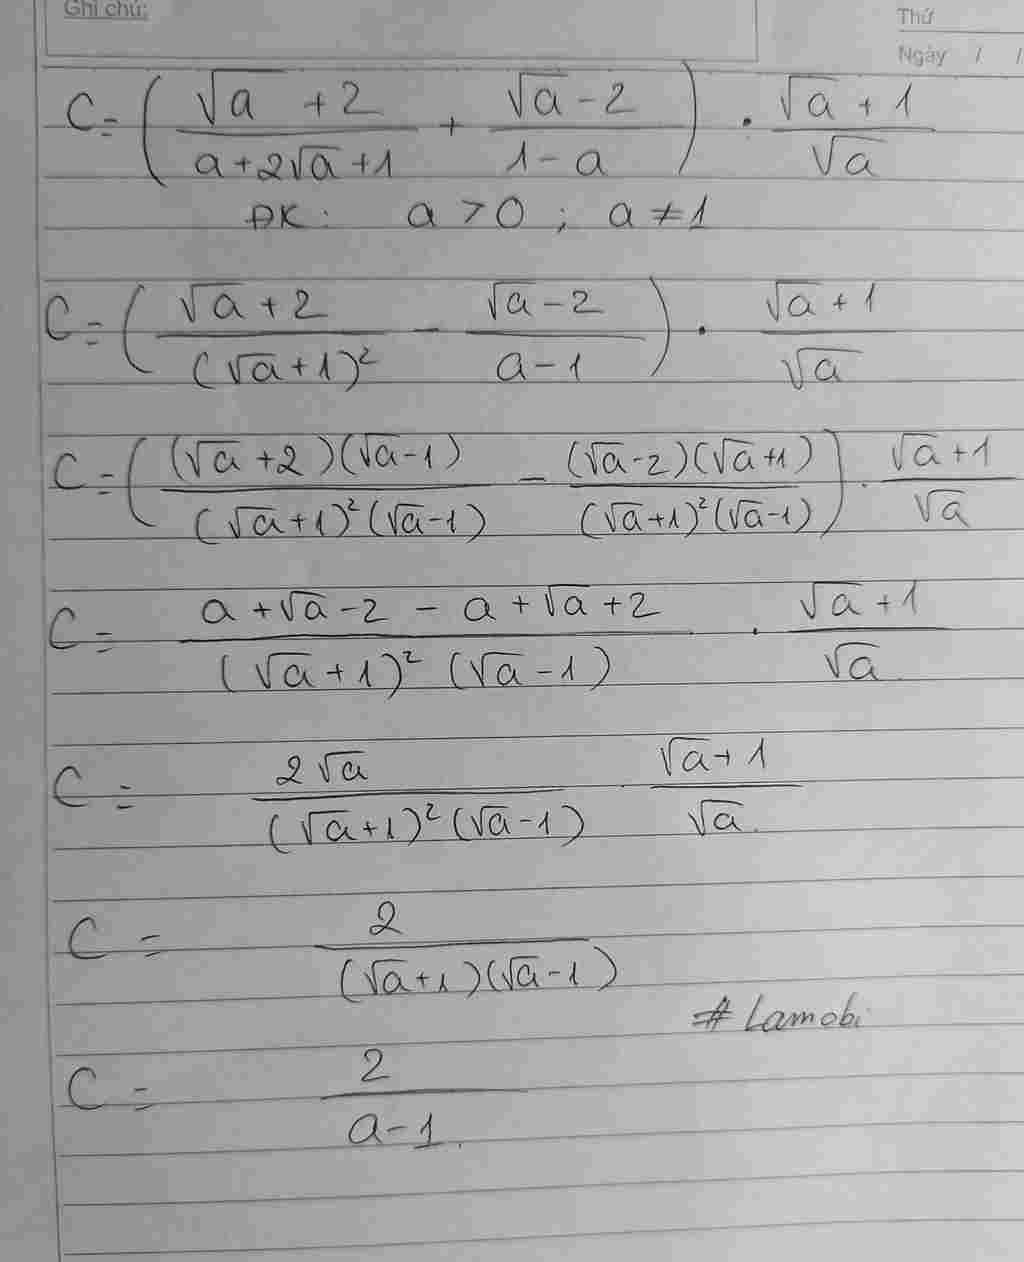 Ghi chú:
Thứ
Ngày / /
C = ( (√a + 2)/(a + 2√a + 1) + (√a - 2)/(1 - a) ) · (√a + 1)/√a
ĐK: a > 0 ; a ≠ 1
C = ( (√a + 2)/(√a + 1)² - (√a - 2)/(a - 1) ) · (√a + 1)/√a
C = ( (√a + 2)(√a - 1)/((√a + 1)²(√a - 1)) - (√a - 2)(√a + 1)/((√a + 1)²(√a - 1)) ) · (√a + 1)/√a
C = (a + √a - 2 - a + √a + 2)/((√a + 1)² (√a - 1)) · (√a + 1)/√a
C = 2√a/((√a + 1)²(√a - 1)) · (√a + 1)/√a.
C = 2/((√a + 1)(√a - 1))
# Lamobi
C = 2/(a - 1).